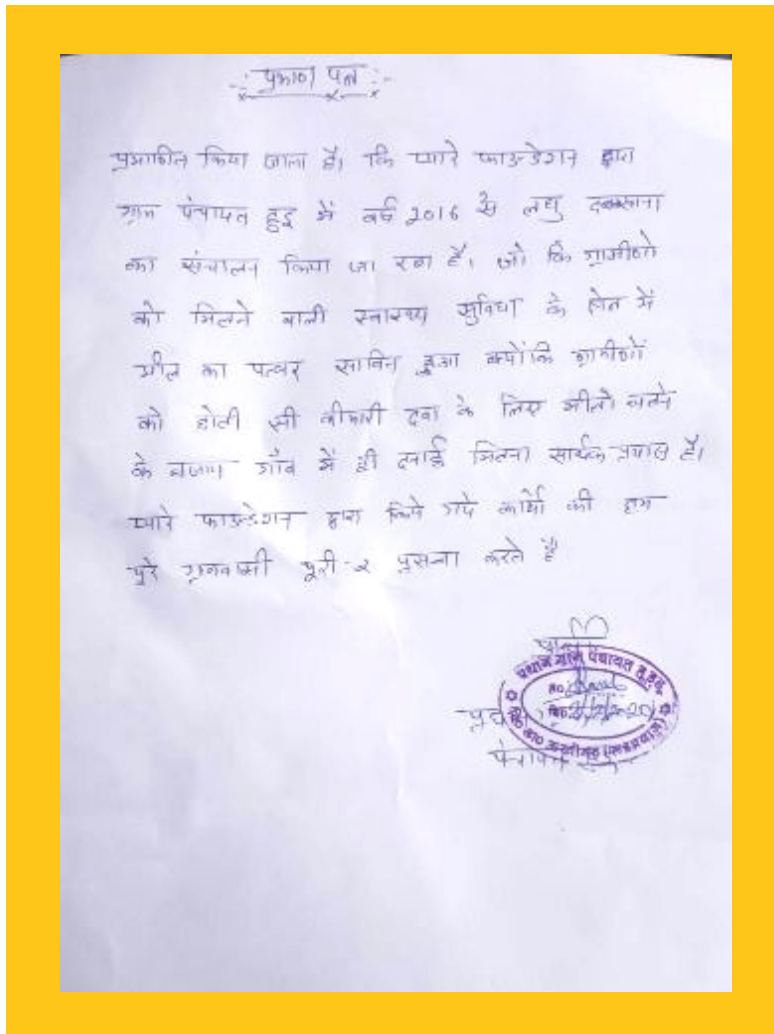 -: प्रमाण पत्र :-
प्रमाणित किया जाता है। कि प्यारे फाउन्डेशन द्वारा
ग्राम पंचायत हुड्ड में वर्ष 2016 से लघु दवाखाना
का संचालन किया जा रहा है। जो कि ग्रामीणो
को मिलने वाली स्वास्थ्य सुविधा के क्षेत्र में
मील का पत्थर साबित हुआ क्योंकि ग्रामीणों
को छोटी सी बीमारी दवा के लिए मीलो चलने
के बजाय गाँव में ही दवाई मिलना सार्थक प्रयास है।
प्यारे फाउन्डेशन द्वारा किये गये कार्यो की हम
पुरे ग्रामवासी भूरी-२ प्रसंशा करते है
प्रधान ग्राम पंचायत हुड्डू